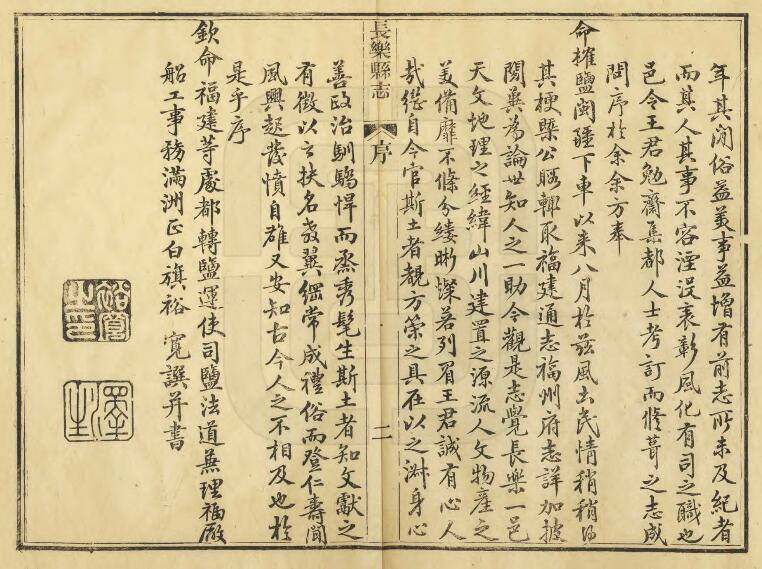 年其間俗益美事益增有前志所未及紀者
而其人其事不容湮沒表彰風化有司之職也
邑令王君勉齋集都人士考訂而修葺之志成
問序於余余方奉
命榷鹽閩疆下車以來八月於茲風土民情稍稍得
其梗槩公暇輒取福建通志福州府志詳加披
閱冀為論世知人之一助今觀是志覺長樂一邑
天文地理之經緯山川建置之源流人文物產之
美備靡不條分縷晰燦若列眉王君誠有心人
哉從自今官斯土者覩方策之具在以之淑身心
長樂縣志
序
二
善政治馴驕悍而烝秀髦生斯土者知文獻之
有徵以之扶名教翼綱常成禮俗而登仁壽聞
風興起發憤自雄又安知古今人之不相及也於
是乎序
欽命福建等處都轉鹽運使司鹽法道兼理福廠
船工事務滿洲正白旗裕 寬譔并書
裕寬之印
澤生